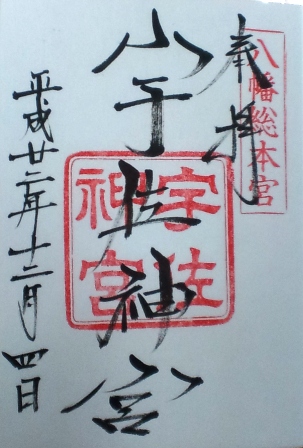 八幡総本宮
奉拝
宇佐神宮
宇佐神宮
平成廿二年十二月四日